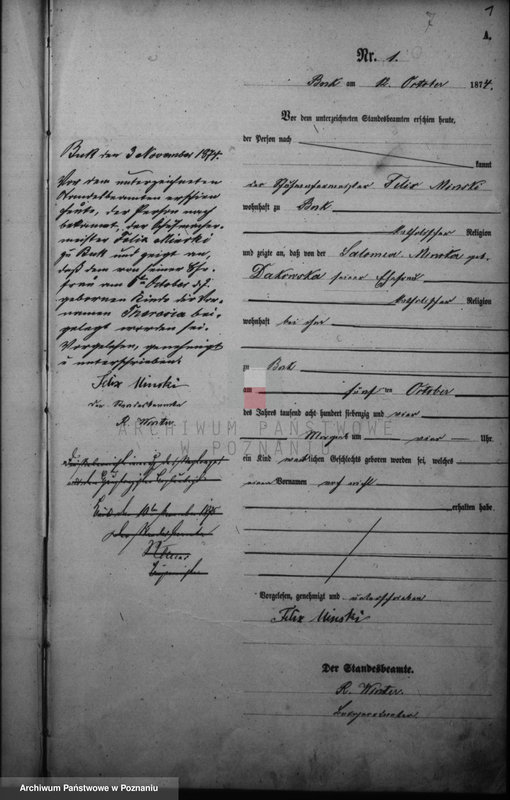 7
1
A.
Nr. 1.
Buk am 12. October 1874.
Vor dem unterzeichneten Standesbeamten erschien heute,
der Person nach
kannt
der Schuhmachermeister Felix Minski
wohnhaft zu Buk
katholischer Religion
und zeigte an, daß von der Salomea Minska geb.
Dakowska seiner Ehefrau
katholischer Religion
wohnhaft bei ihm
zu Buk
am fünf ten October
des Jahres tausend acht hundert siebenzig und vier
Morgens um vier Uhr
ein Kind weiblichen Geschlechts geboren worden sei, welches
einen Vornamen noch nicht
erhalten habe
Vorgelesen, genehmigt und unterschrieben
Felix Minski
Der Standesbeamte.
R. Winter
Buk den 3 November 1874.
Vor dem unterzeichneten
Standesbeamten erschien
heute, der Person nach
bekannt, der Schuhmacher-
meister Felix Minski
zu Buk und zeigt an,
daß dem von seiner Ehe-
frau am 5ten October d.J.
gebornen Kinde die Vor-
namen Theresia bei-
gelegt worden sei.
Vorgelesen, genehmigt
u unterschrieben.
Felix Minski
der Standesbeamte
R. Winter
ARCHIWUM PAŃSTWOWE
W POZNANIU
Archiwum Państwowe w Poznaniu